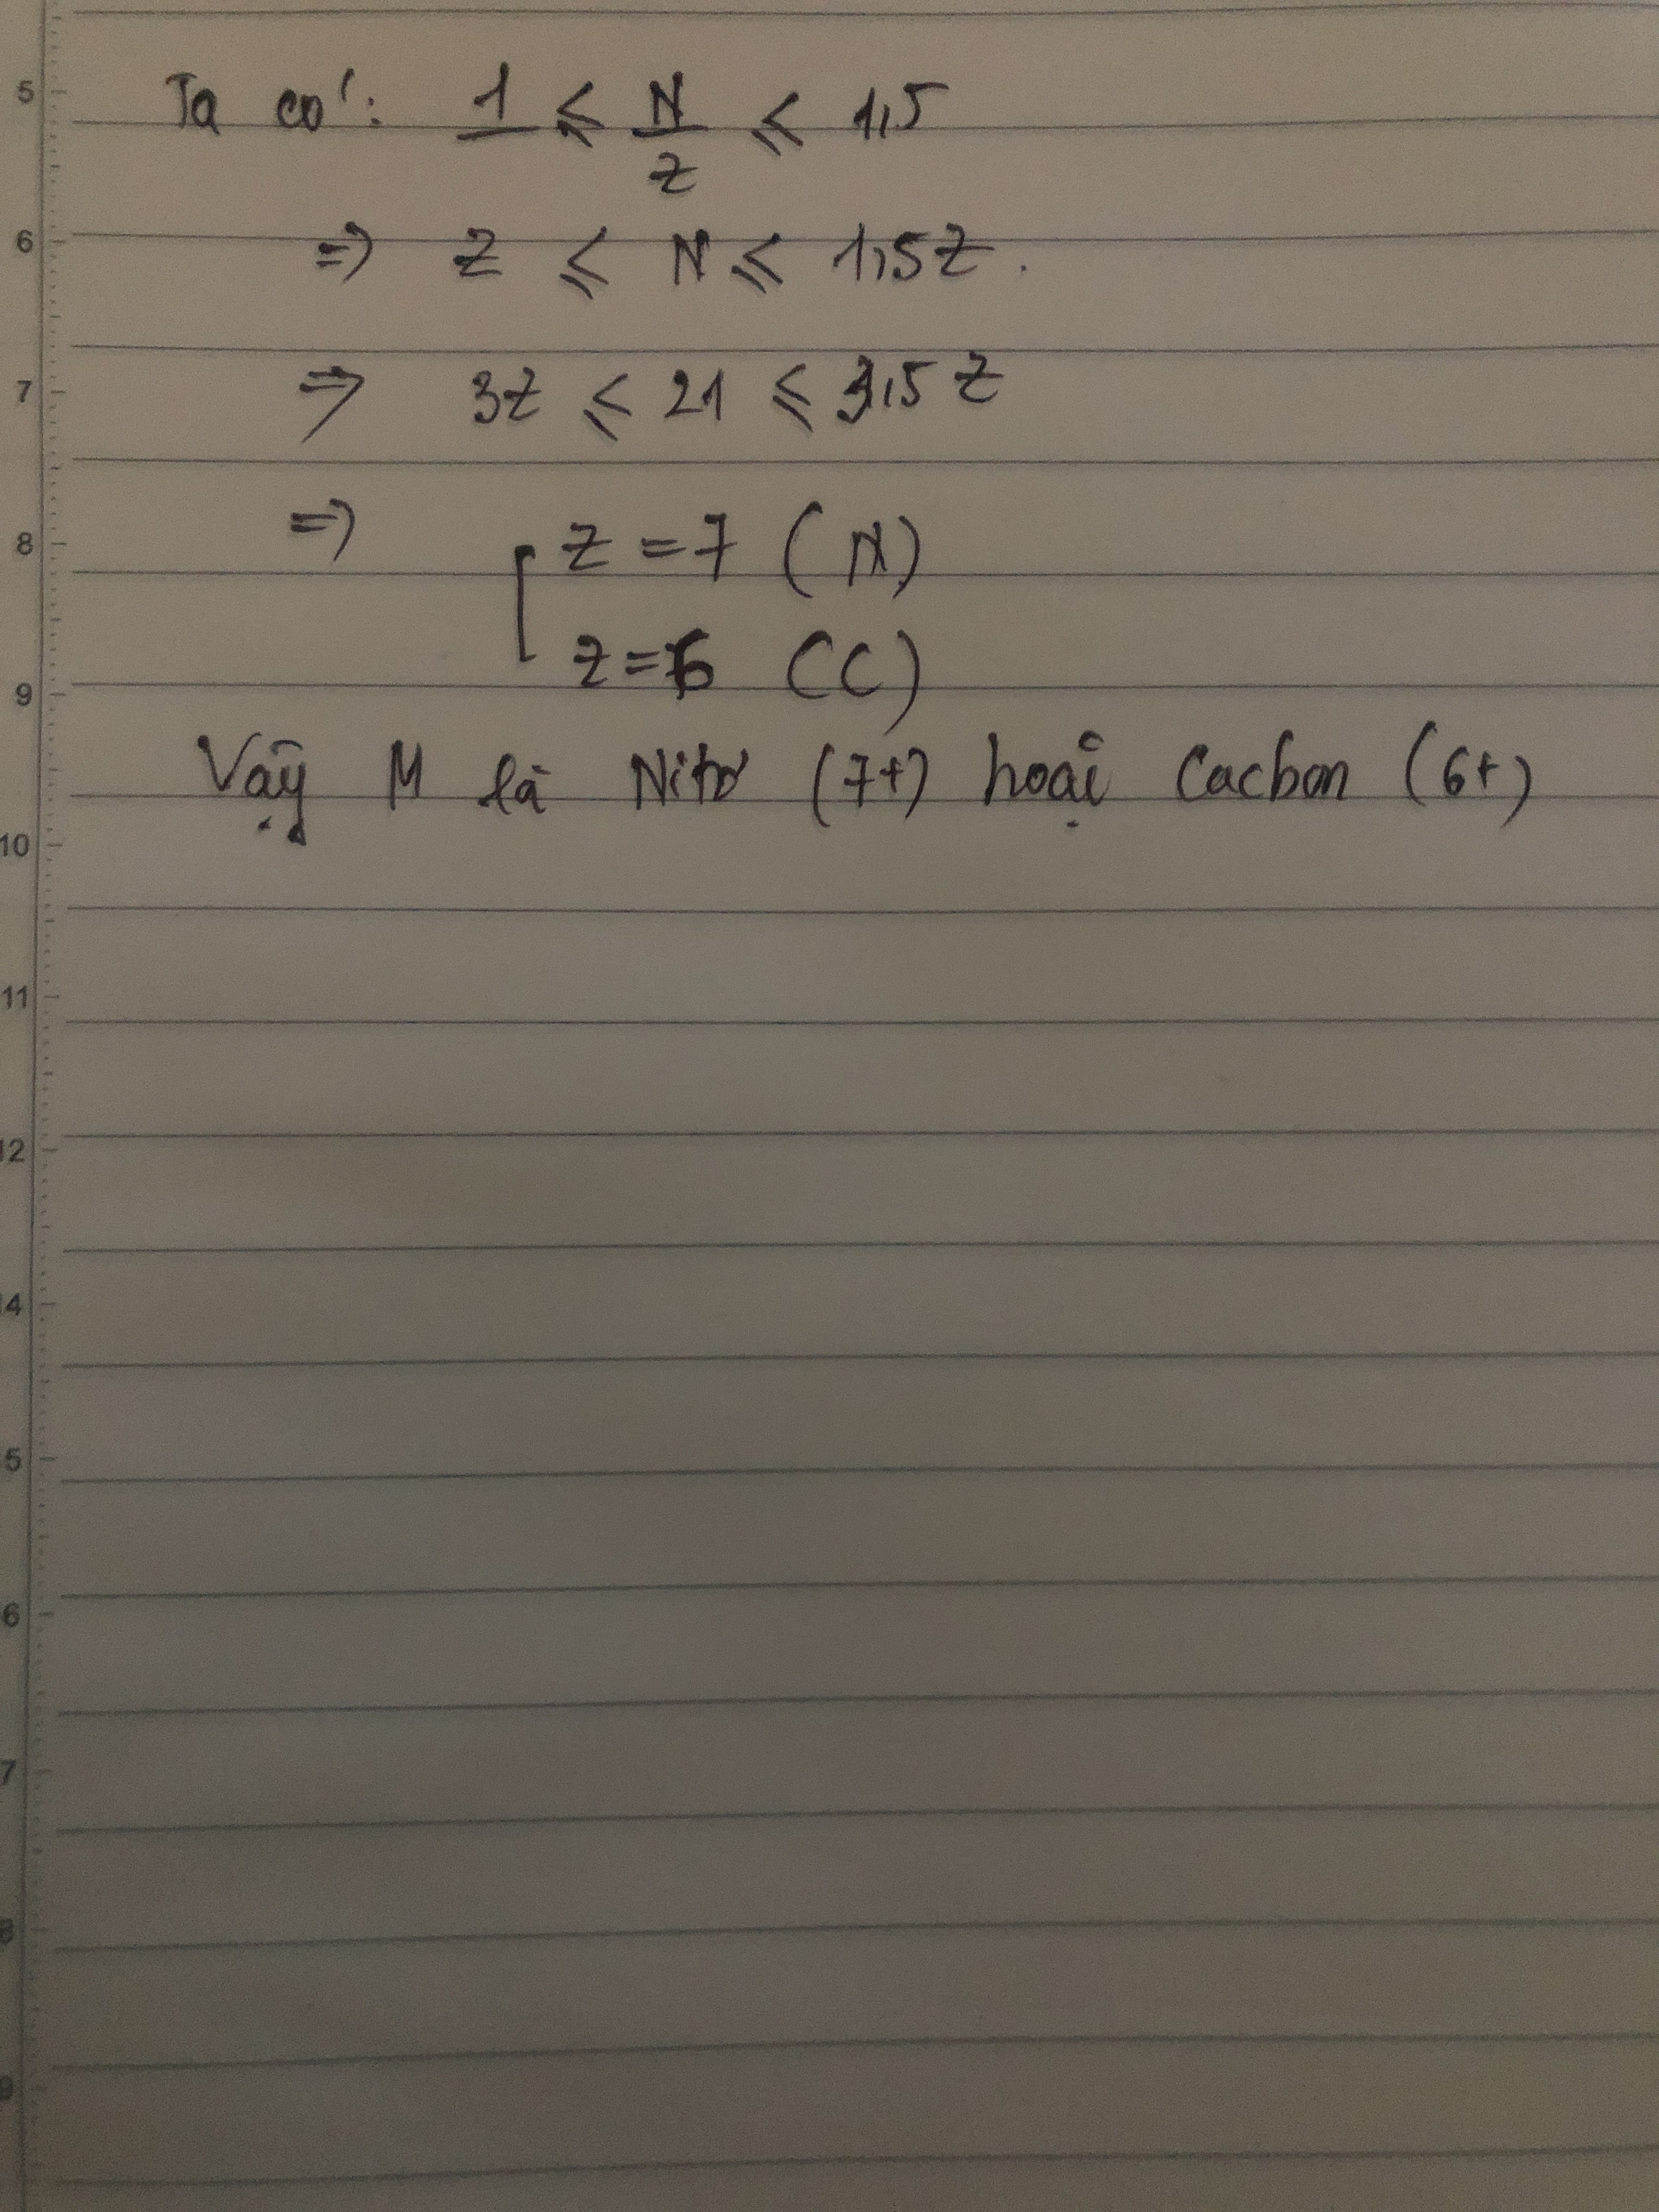 5
Ta có: 1 ≤ N/Z ≤ 1,5
6
=> Z ≤ N ≤ 1,5Z.
7
=> 3Z ≤ 21 ≤ 3,5Z
8
=> [ Z = 7 (N)
Z = 6 (C)
9
Vậy M là Nitơ (7+) hoặc Cacbon (6+)
10
11
12
14
5
6
7
8
9